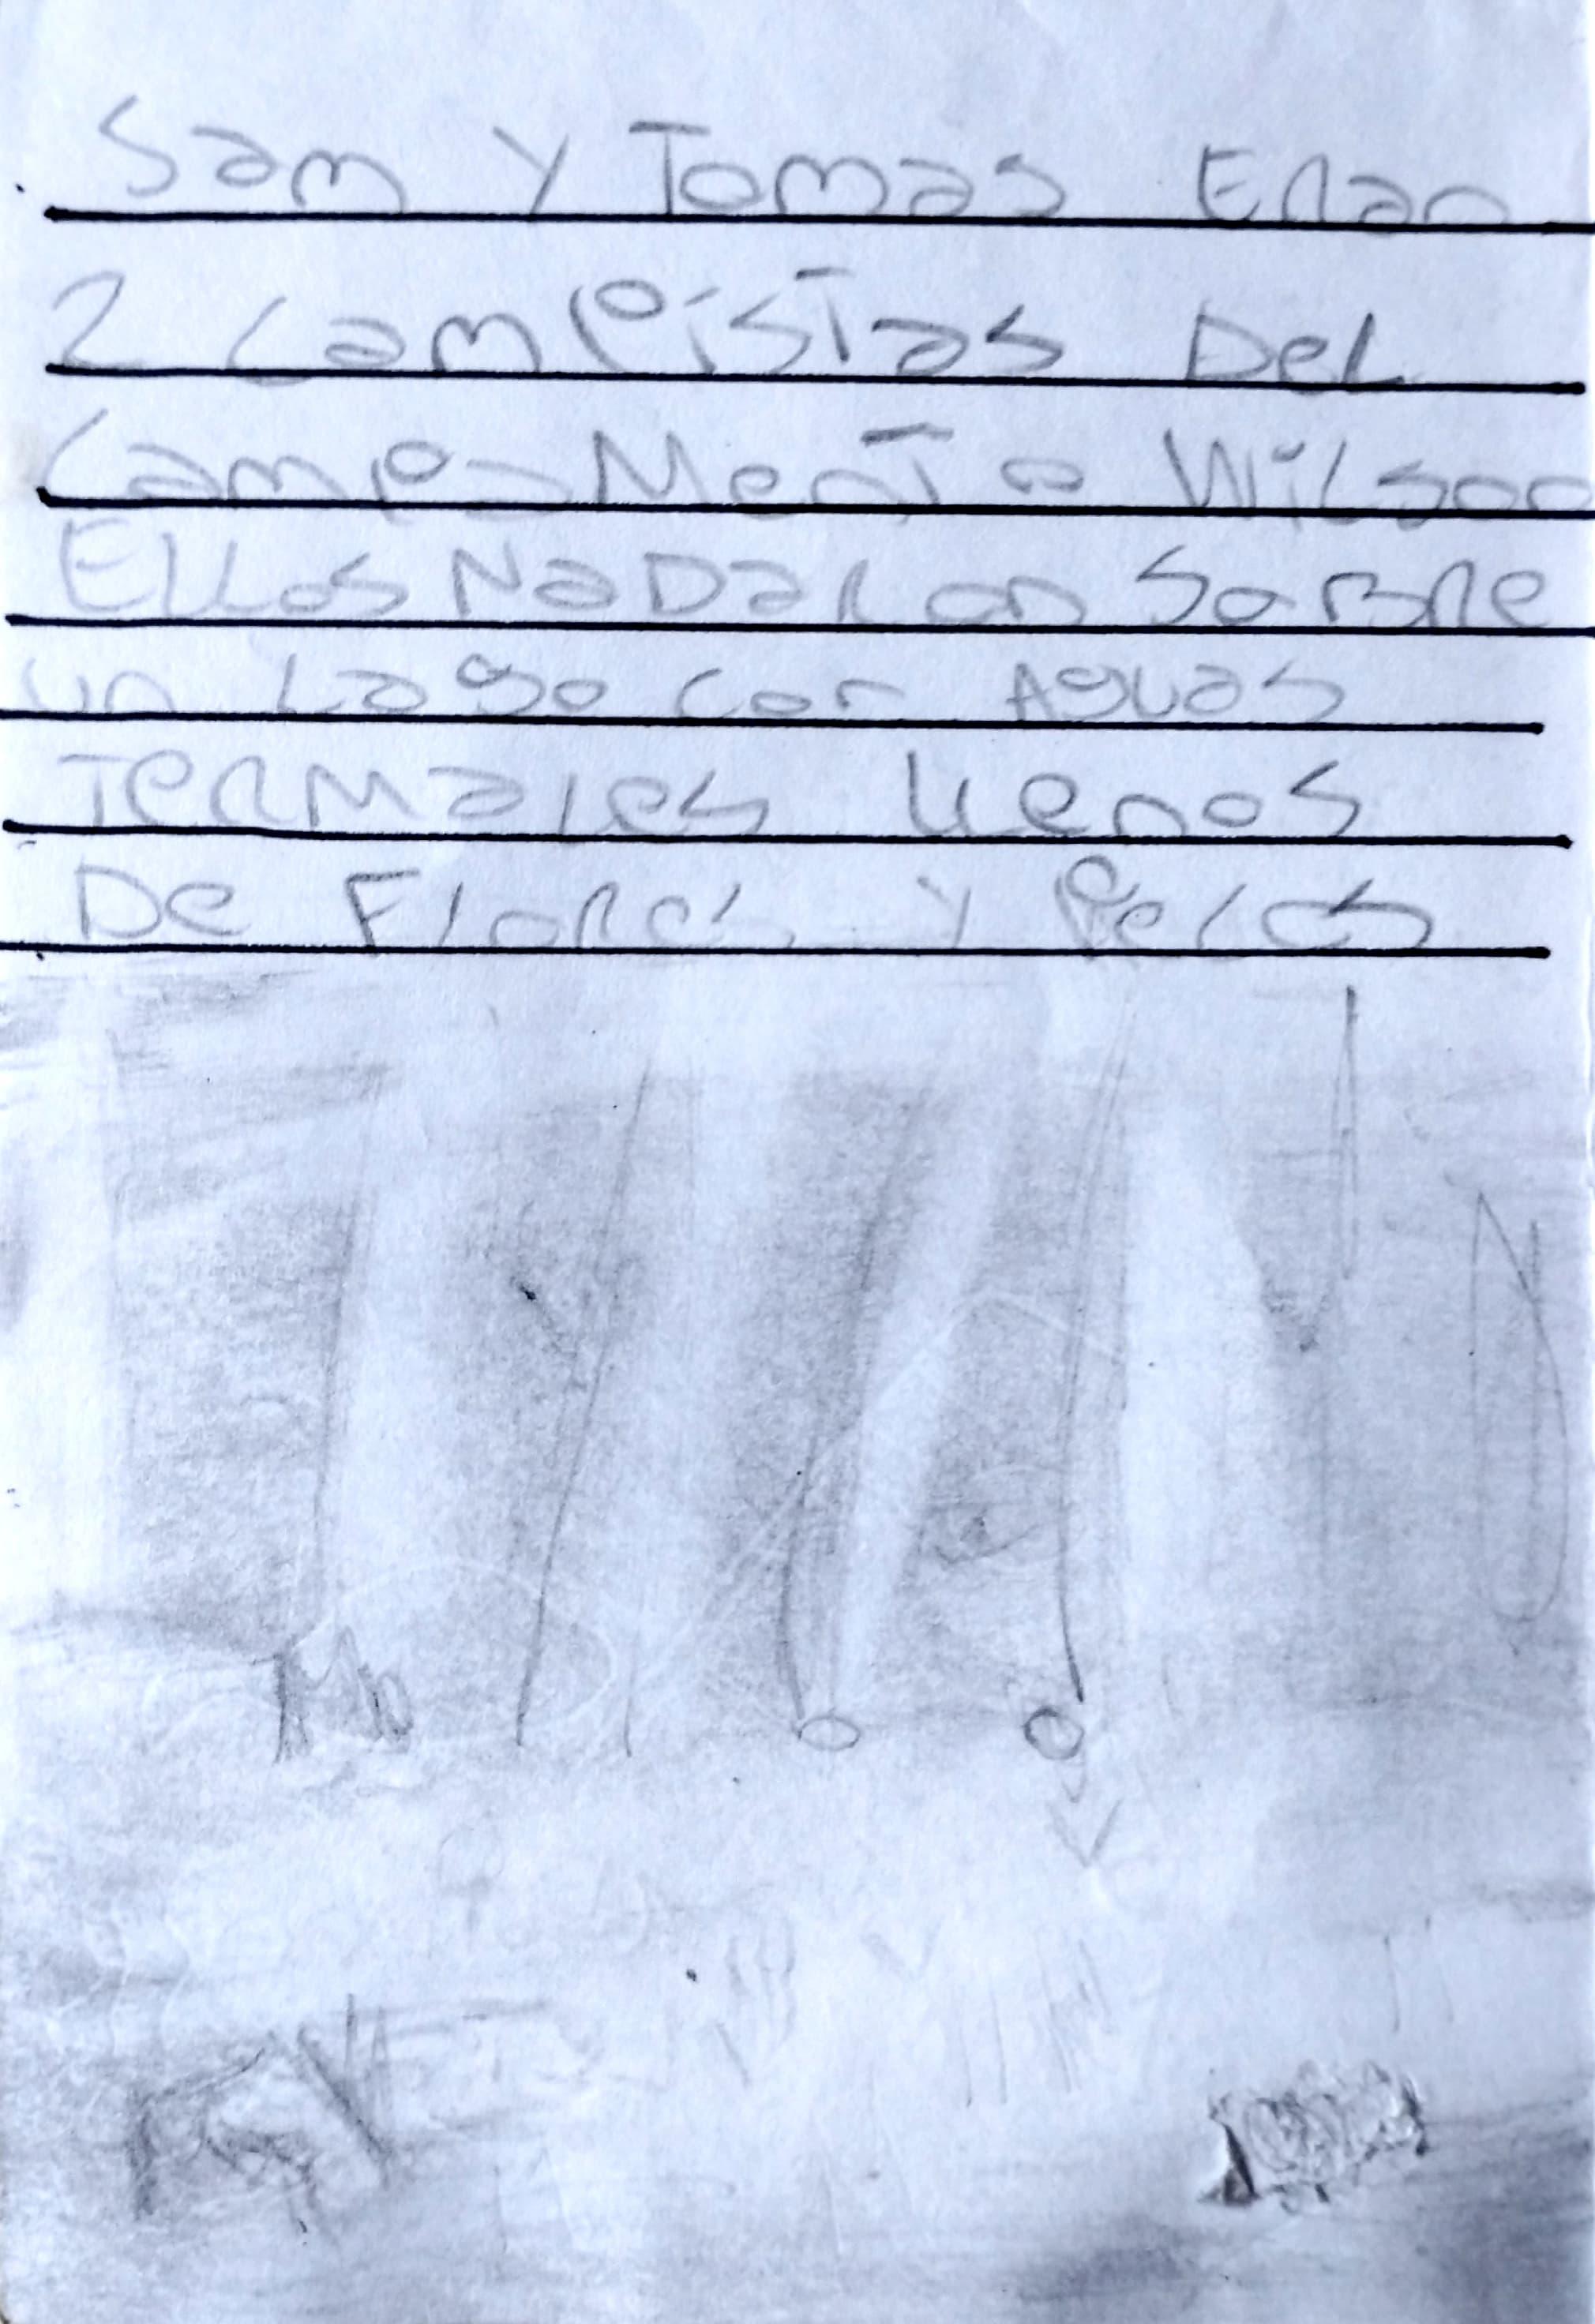 Sam y Tomas Eran
2 Campistas Del
Campamento Wilson
Ellos NaDaron SoBre
un Lago con Aguas
Termales llenos
De Flores y Peces